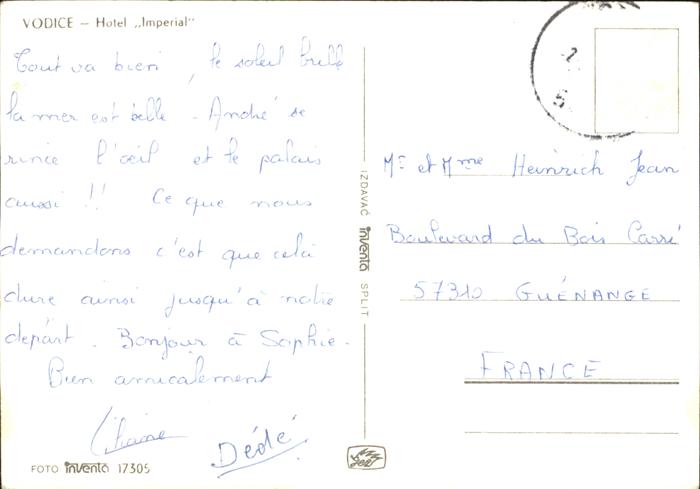 VODICE — Hotel „Imperial"
Tout va bien, le soleil brille
la mer est belle - André se
rince l'œil et le palais
aussi !! Ce que nous
demandons c'est que cela
dure ainsi jusqu'à notre
départ. Bonjour à Sophie.
Bien amicalement
Liliane Dédé
FOTO inventa 17305
IZDAVAČ inventa SPLIT
Mr et Mme Heinrich Jean
Boulevard du Bois Carré
57310 GUÉNANGE
FRANCE